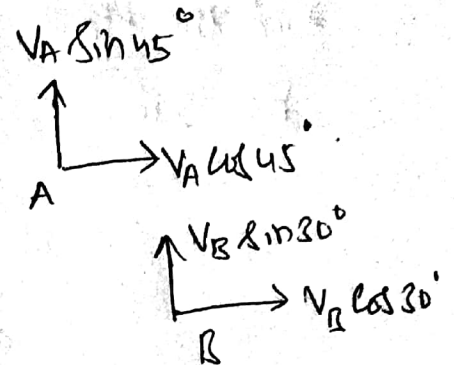 VA Sin 45°
VA cos 45°
A
VB Sin 30°
VB Cos 30°
B